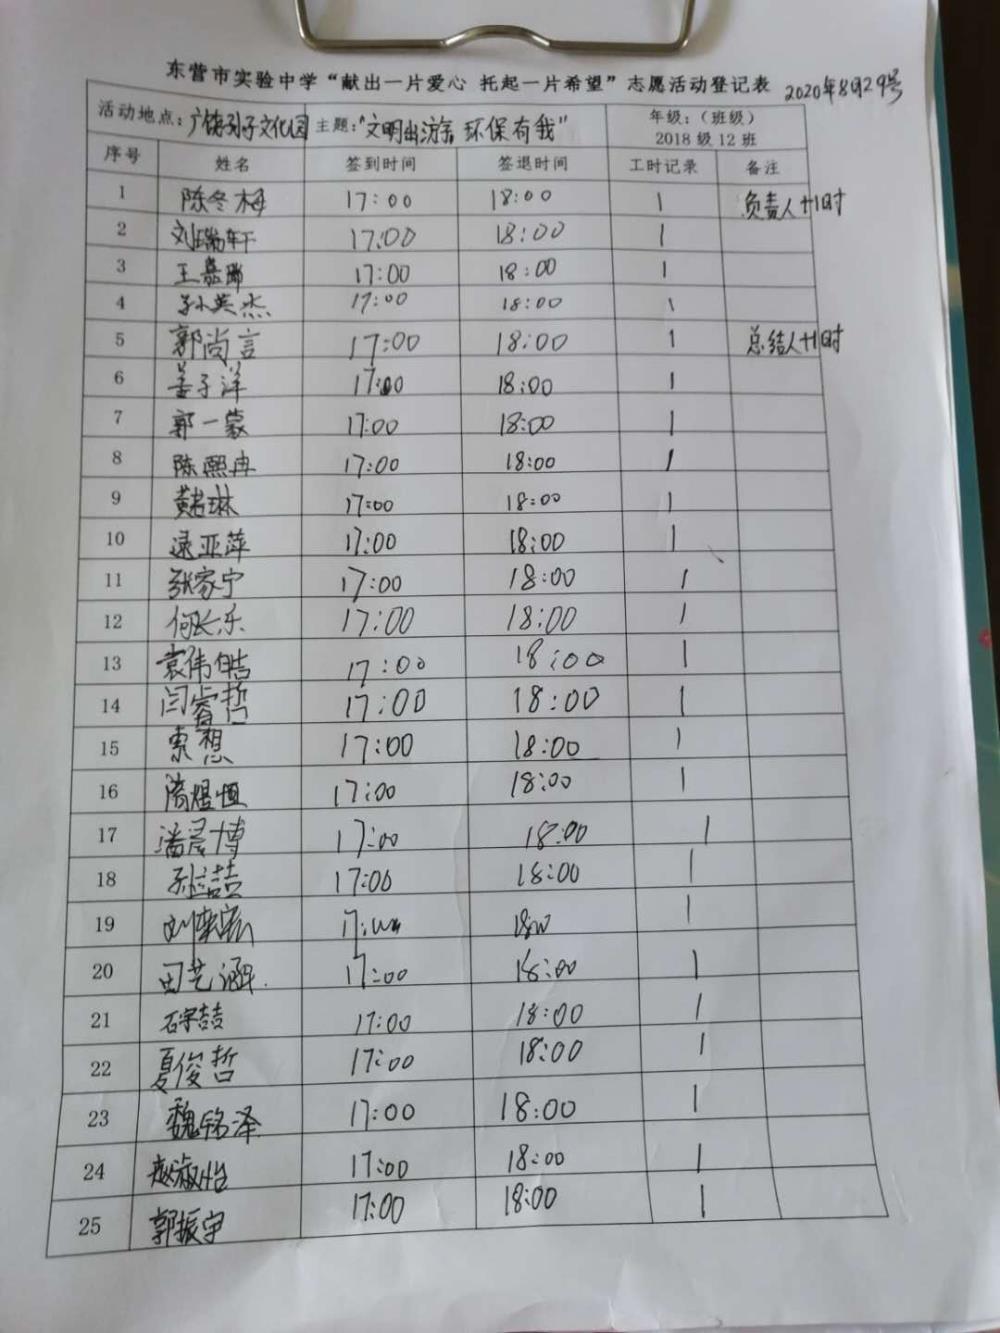 东营市实验中学“献出一片爱心 托起一片希望”志愿活动登记表 2020年8月29号
活动地点：广饶孙子文化园 主题：“文明出游 环保有我” 年级：（班级）
2018级12班
序号 姓名 签到时间 签退时间 工时记录 备注
1 陈冬梅 17:00 18:00 1 负责人+1时
2 刘瑞轩 17:00 18:00 1
3 王嘉 17:00 18:00 1
4 孙英杰 17:00 18:00 1
5 郭尚言 17:00 18:00 1 总结人+1时
6 子洋 17:00 18:00 1
7 郭一蒙 17:00 18:00 1
8 陈熙冉 17:00 18:00 1
9 黄琳 17:00 18:00 1
10 逯亚萍 17:00 18:00 1
11 张家宁 17:00 18:00 1
12 何长乐 17:00 18:00 1
13 袁伟皓 17:00 18:00 1
14 闫睿哲 17:00 18:00 1
15 索想 17:00 18:00 1
16 隋煜恒 17:00 18:00 1
17 潘晨博 17:00 18:00 1
18 喆 17:00 18:00 1
19 刘 17:00 18:00 1
20 田艺涵 17:00 18:00 1
21 石宇喆 17:00 18:00 1
22 夏俊哲 17:00 18:00 1
23 魏铭泽 17:00 18:00 1
24 赵淑怡 17:00 18:00 1
25 郭振宇 17:00 18:00 1